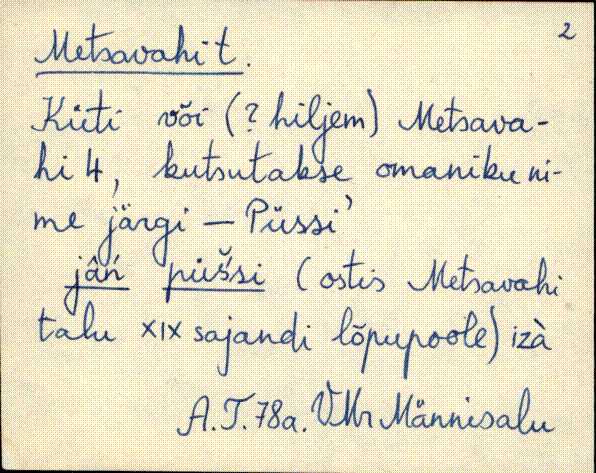 2
Metsavahi t.
Küti või (? hiljem) Metsava-
hi 4, kutsutakse omaniku ni-
me järgi – Püssi'
jâń püšsi (ostis Metsavahi
talu XIX sajandi lõpupoole) izà
A.T. 78a. VMr Männisalu